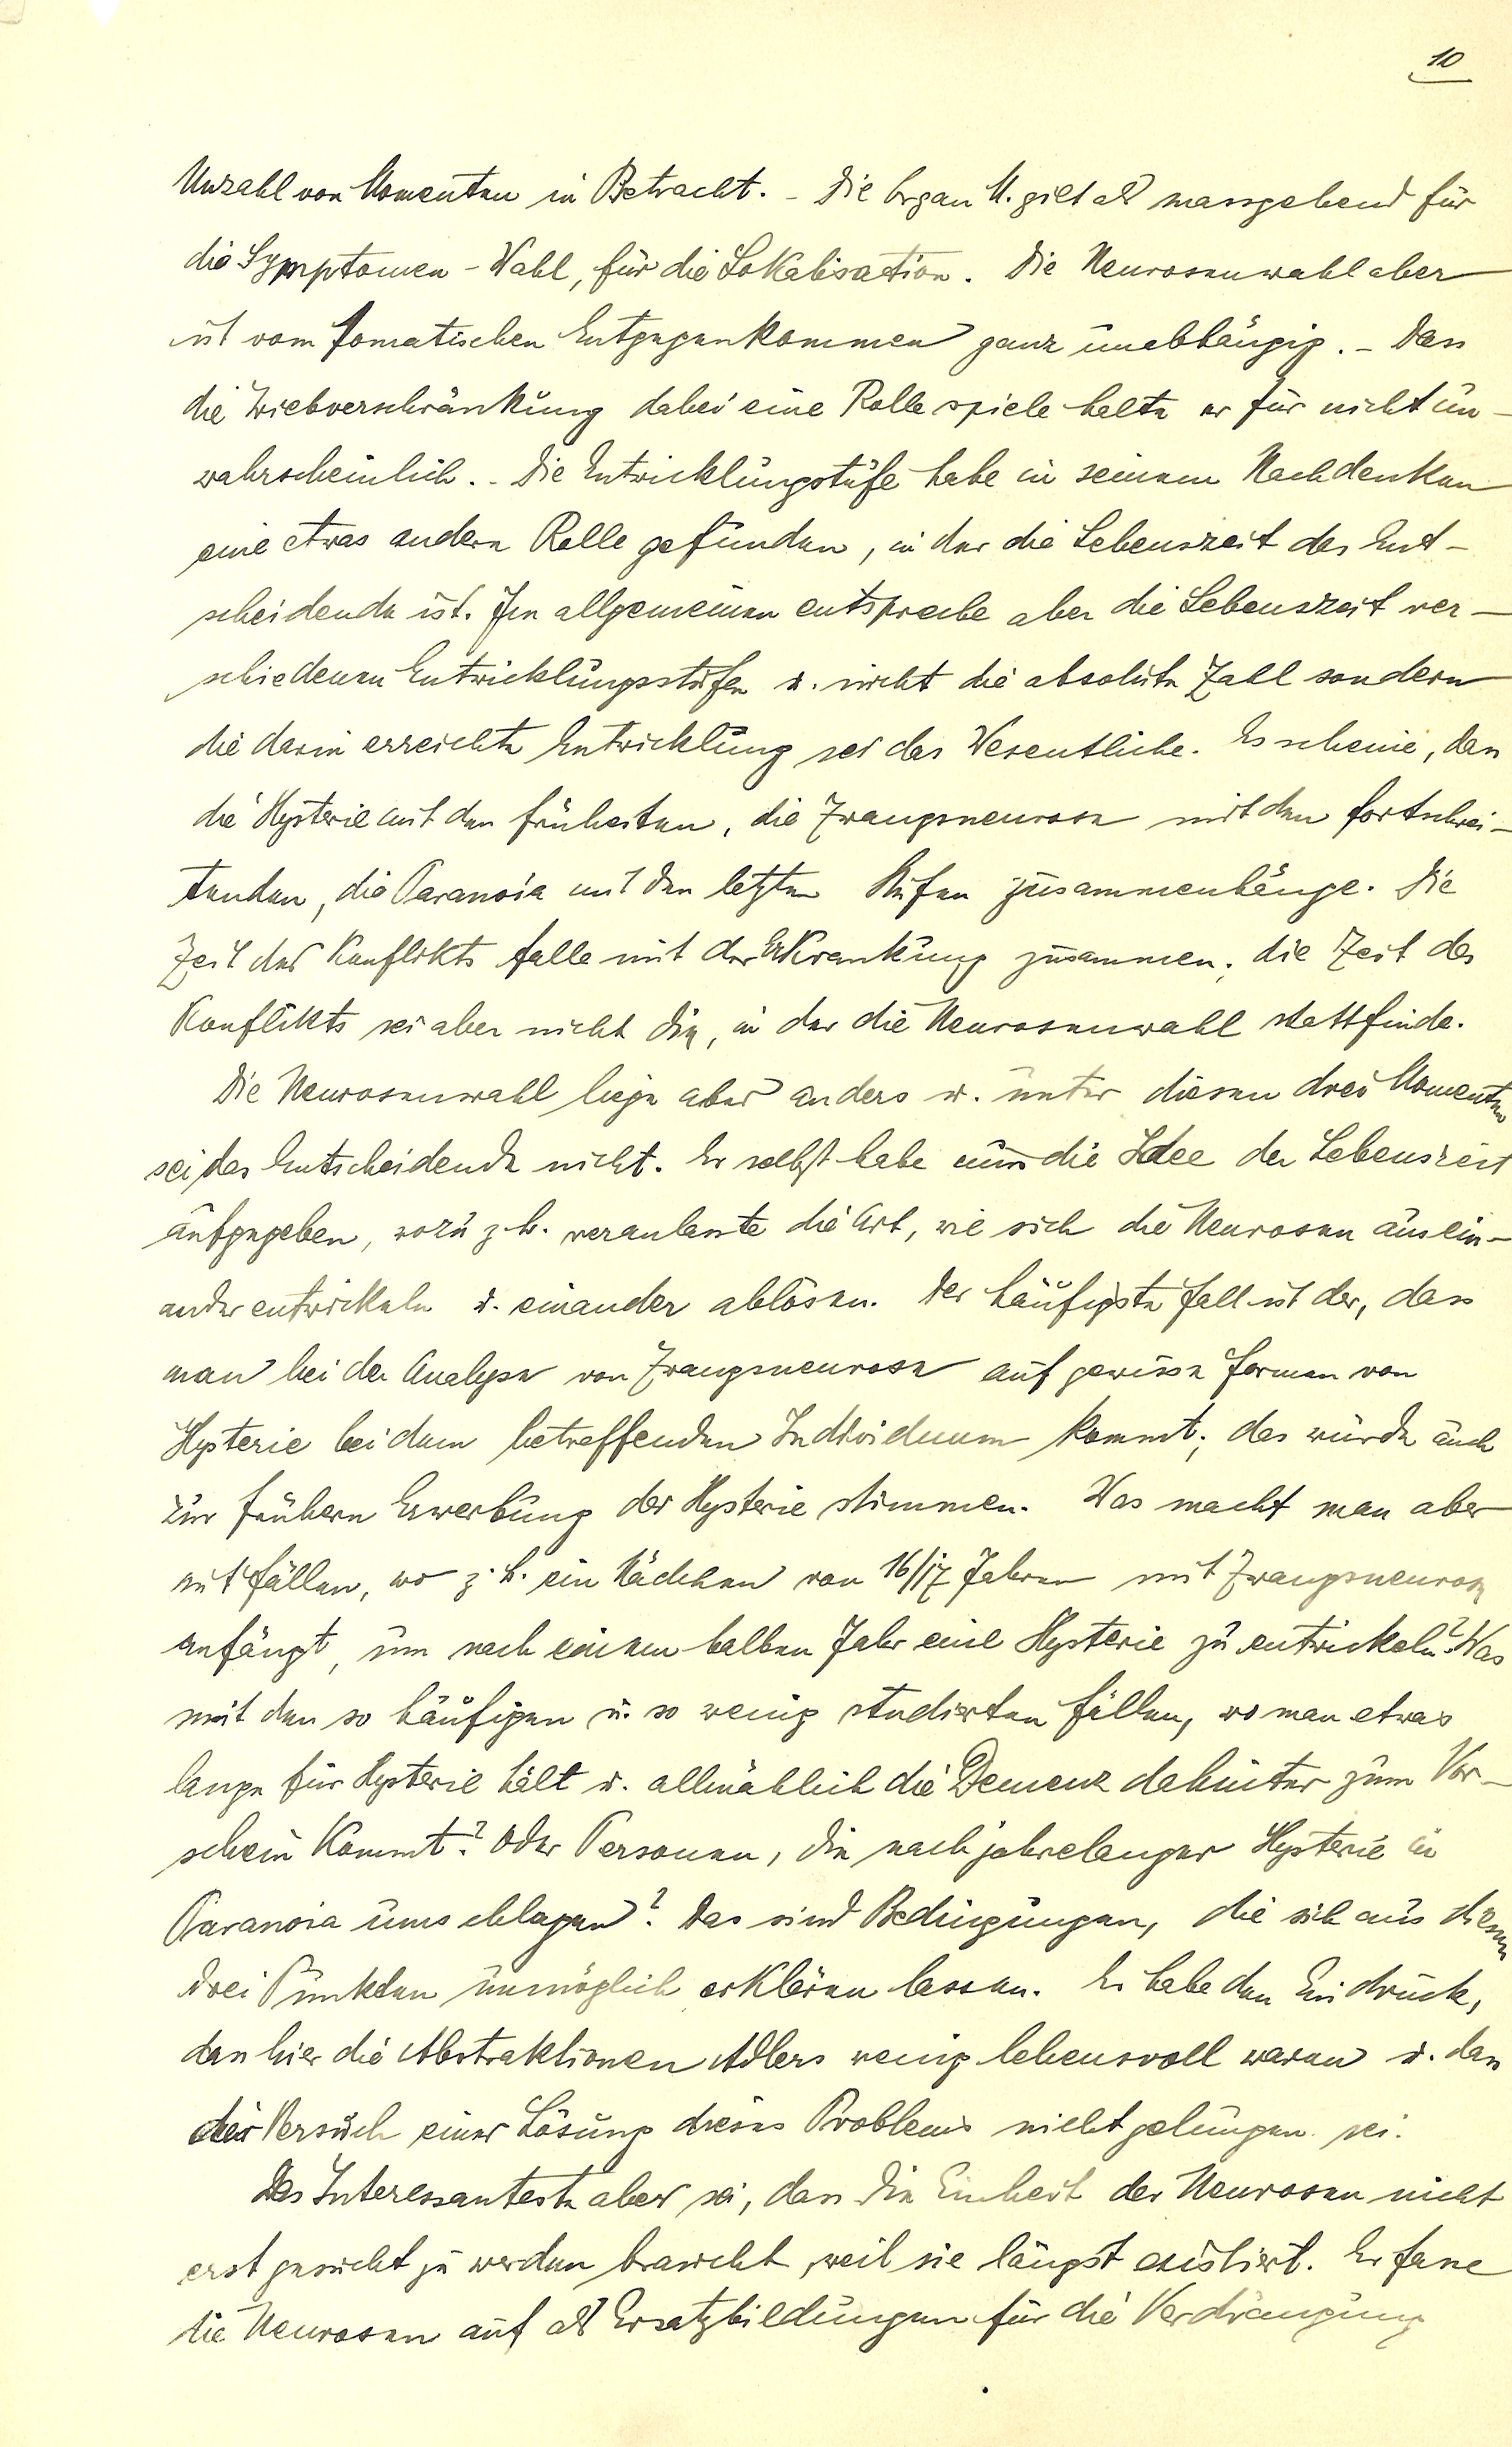 10
Unzahl von Momenten in Betracht. - Die Organ M. gilt als massgebend für
die Symptomen-Wahl, für die Lokalisation. Die Neurosenwahl aber
ist vom somatischen Entgegenkommen ganz unabhängig. - Dass
die Triebverschränkung dabei eine Rolle spiele halte er für nicht un-
wahrscheinlich. - Die Entwicklungstufe habe in seinem Nachdenken
eine etwas andere Rolle gefunden, in der die Lebenszeit das Ent-
scheidende ist. Im allgemeinen entspreche aber die Lebenszeit ver-
schiedenen Entwicklungsstufen u. nicht die absolute Zahl sondern
die darin erreichte Entwicklung sei das Wesentliche. Es scheine, dass
die Hysterie mit den frühesten, die Zwangsneurose mit den fortschrei-
tenden, die Paranoia mit den letzten Stufen zusammenhänge. Die
Zeit des Konflikts falle mit der Erkrankung zusammen; die Zeit des
Konflikts sei aber nicht die, in der die Neurosenwahl stattfinde.
Die Neurosenwahl liege aber anders u. unter diesen drei Momenten
sei das Entscheidende nicht. Er selbst habe nun die Idee der Lebenszeit
aufgegeben, wozu z.B. veranlasste die Art, wie sich die Neurosen ausein-
ander entwickeln u. einander ablösen. Der häufigste Fall ist der, dass
man bei der Analyse von Zwangsneurose auf gewisse Formen von
Hysterie bei dem betreffenden Individuum kommt; das würde auch
zur frühern Erwerbung der Hysterie stimmen. Was macht man aber
mit Fällen, wo z.B. ein Mädchen von 16/17 Jahren mit Zwangsneurose
anfängt, um nach einem halben Jahr eine Hysterie zu entwickeln? Was
mit den so häufigen u. so wenig studierten Fällen, wo man etwas
lange für Hysterie hält u. allmählich die Demenz dahinter zum Vor-
schein kommt? Oder Personen, die nach jahrelanger Hysterie in
Paranoia umschlagen? Das sind Bedingungen, die sich aus diesen
drei Punkten unmöglich erklären lassen. Er habe den Eindruck,
dass hier die Abstraktionen Adlers wenig lebensvoll waren u. dass
der Versuch einer Lösung dieses Problems nicht gelungen sei.
Das Interessanteste aber sei, dass die Einheit der Neurosen nicht
erst gesucht zu werden braucht, weil sie längst existiert. Er fasse
die Neurosen auf als Ersatzbildungen für die Verdrängung